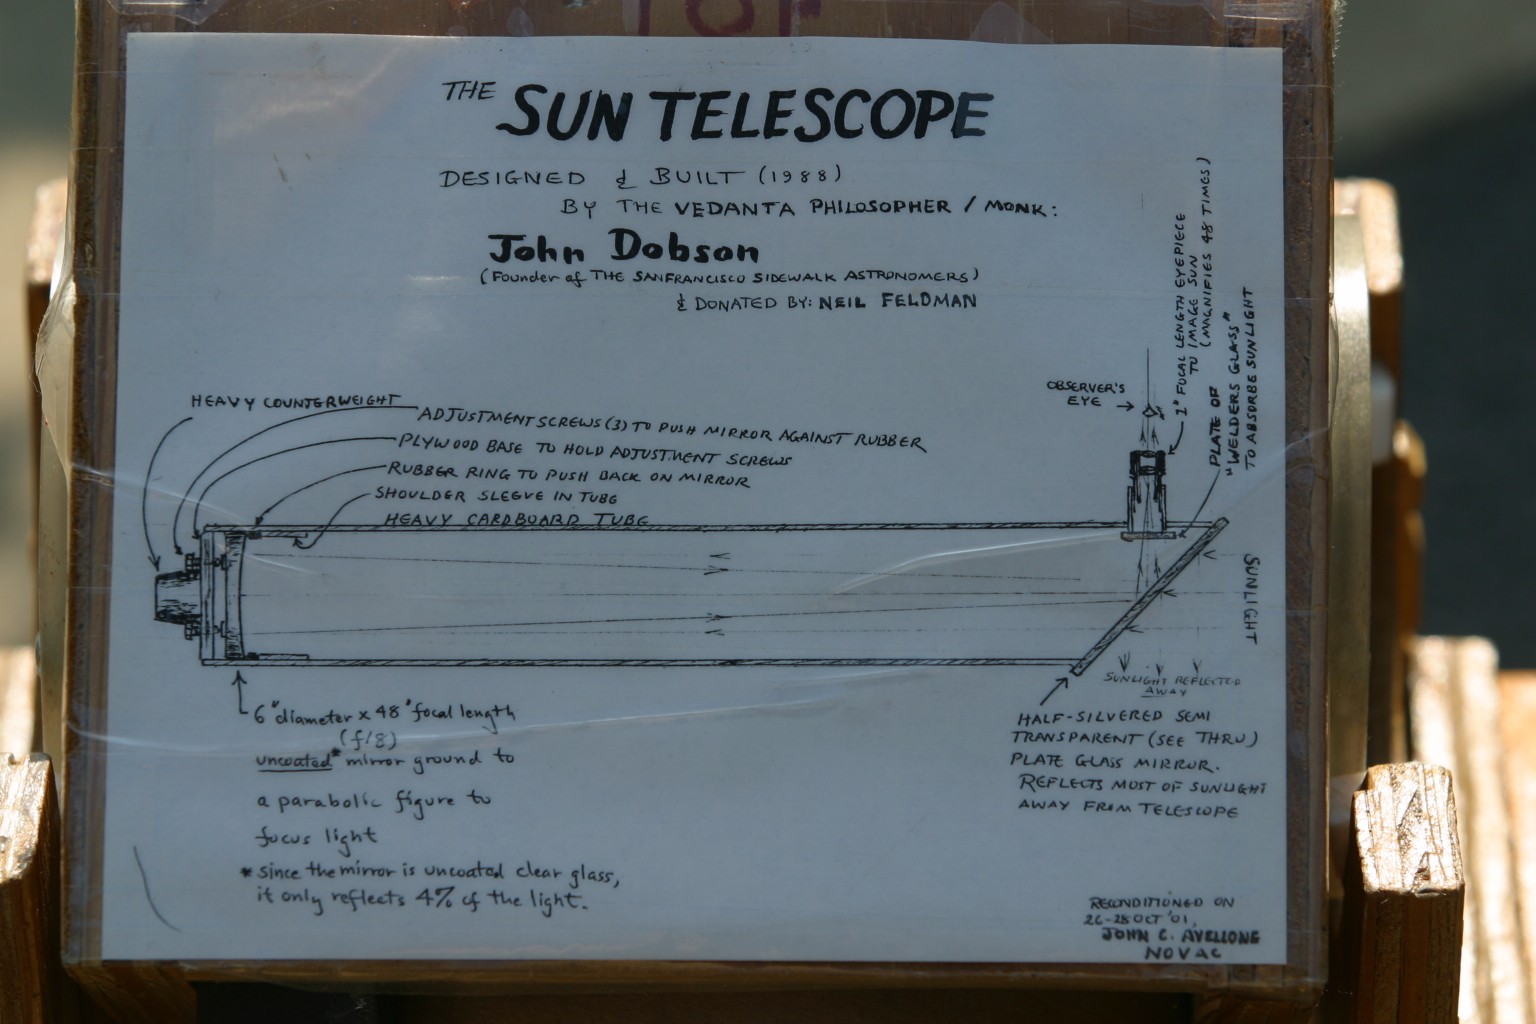 THE SUN TELESCOPE
DESIGNED & BUILT (1988)
BY THE VEDANTA PHILOSOPHER / MONK:
John Dobson
(Founder of THE SANFRANCISCO SIDEWALK ASTRONOMERS)
& DONATED BY: NEIL FELDMAN
HEAVY COUNTERWEIGHT
ADJUSTMENT SCREWS (3) TO PUSH MIRROR AGAINST RUBBER
PLYWOOD BASE TO HOLD ADJUSTMENT SCREWS
RUBBER RING TO PUSH BACK ON MIRROR
SHOULDER SLEEVE IN TUBE
HEAVY CARDBOARD TUBE
OBSERVER'S
EYE
1" FOCAL LENGTH EYEPIECE
TO IMAGE SUN
(MAGNIFIES 48 TIMES)
PLATE OF
"WELDERS GLASS"
TO ABSORBE SUNLIGHT
SUNLIGHT
SUNLIGHT REFLECTED
AWAY
6" diameter x 48" focal length
(f/8)
uncoated* mirror ground to
a parabolic figure to
focus light
* since the mirror is uncoated clear glass,
it only reflects 4% of the light.
HALF-SILVERED SEMI
TRANSPARENT (SEE THRU)
PLATE GLASS MIRROR.
REFLECTS MOST OF SUNLIGHT
AWAY FROM TELESCOPE
RECONDITIONED ON
26-28 OCT '01,
JOHN C. AVELLONE
NOVAC